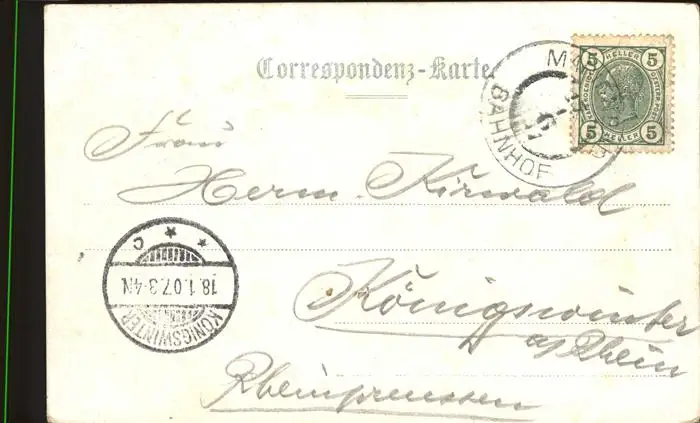 Correspondenz-Karte
5 HELLER 5
5 HELLER 5
BAHNHOF
Frau
Herm. Kirwald
Königswinter
a/ Rhein
Rheinpreussen
KÖNIGSWINTER
18.1.07.3-4N.
* * C